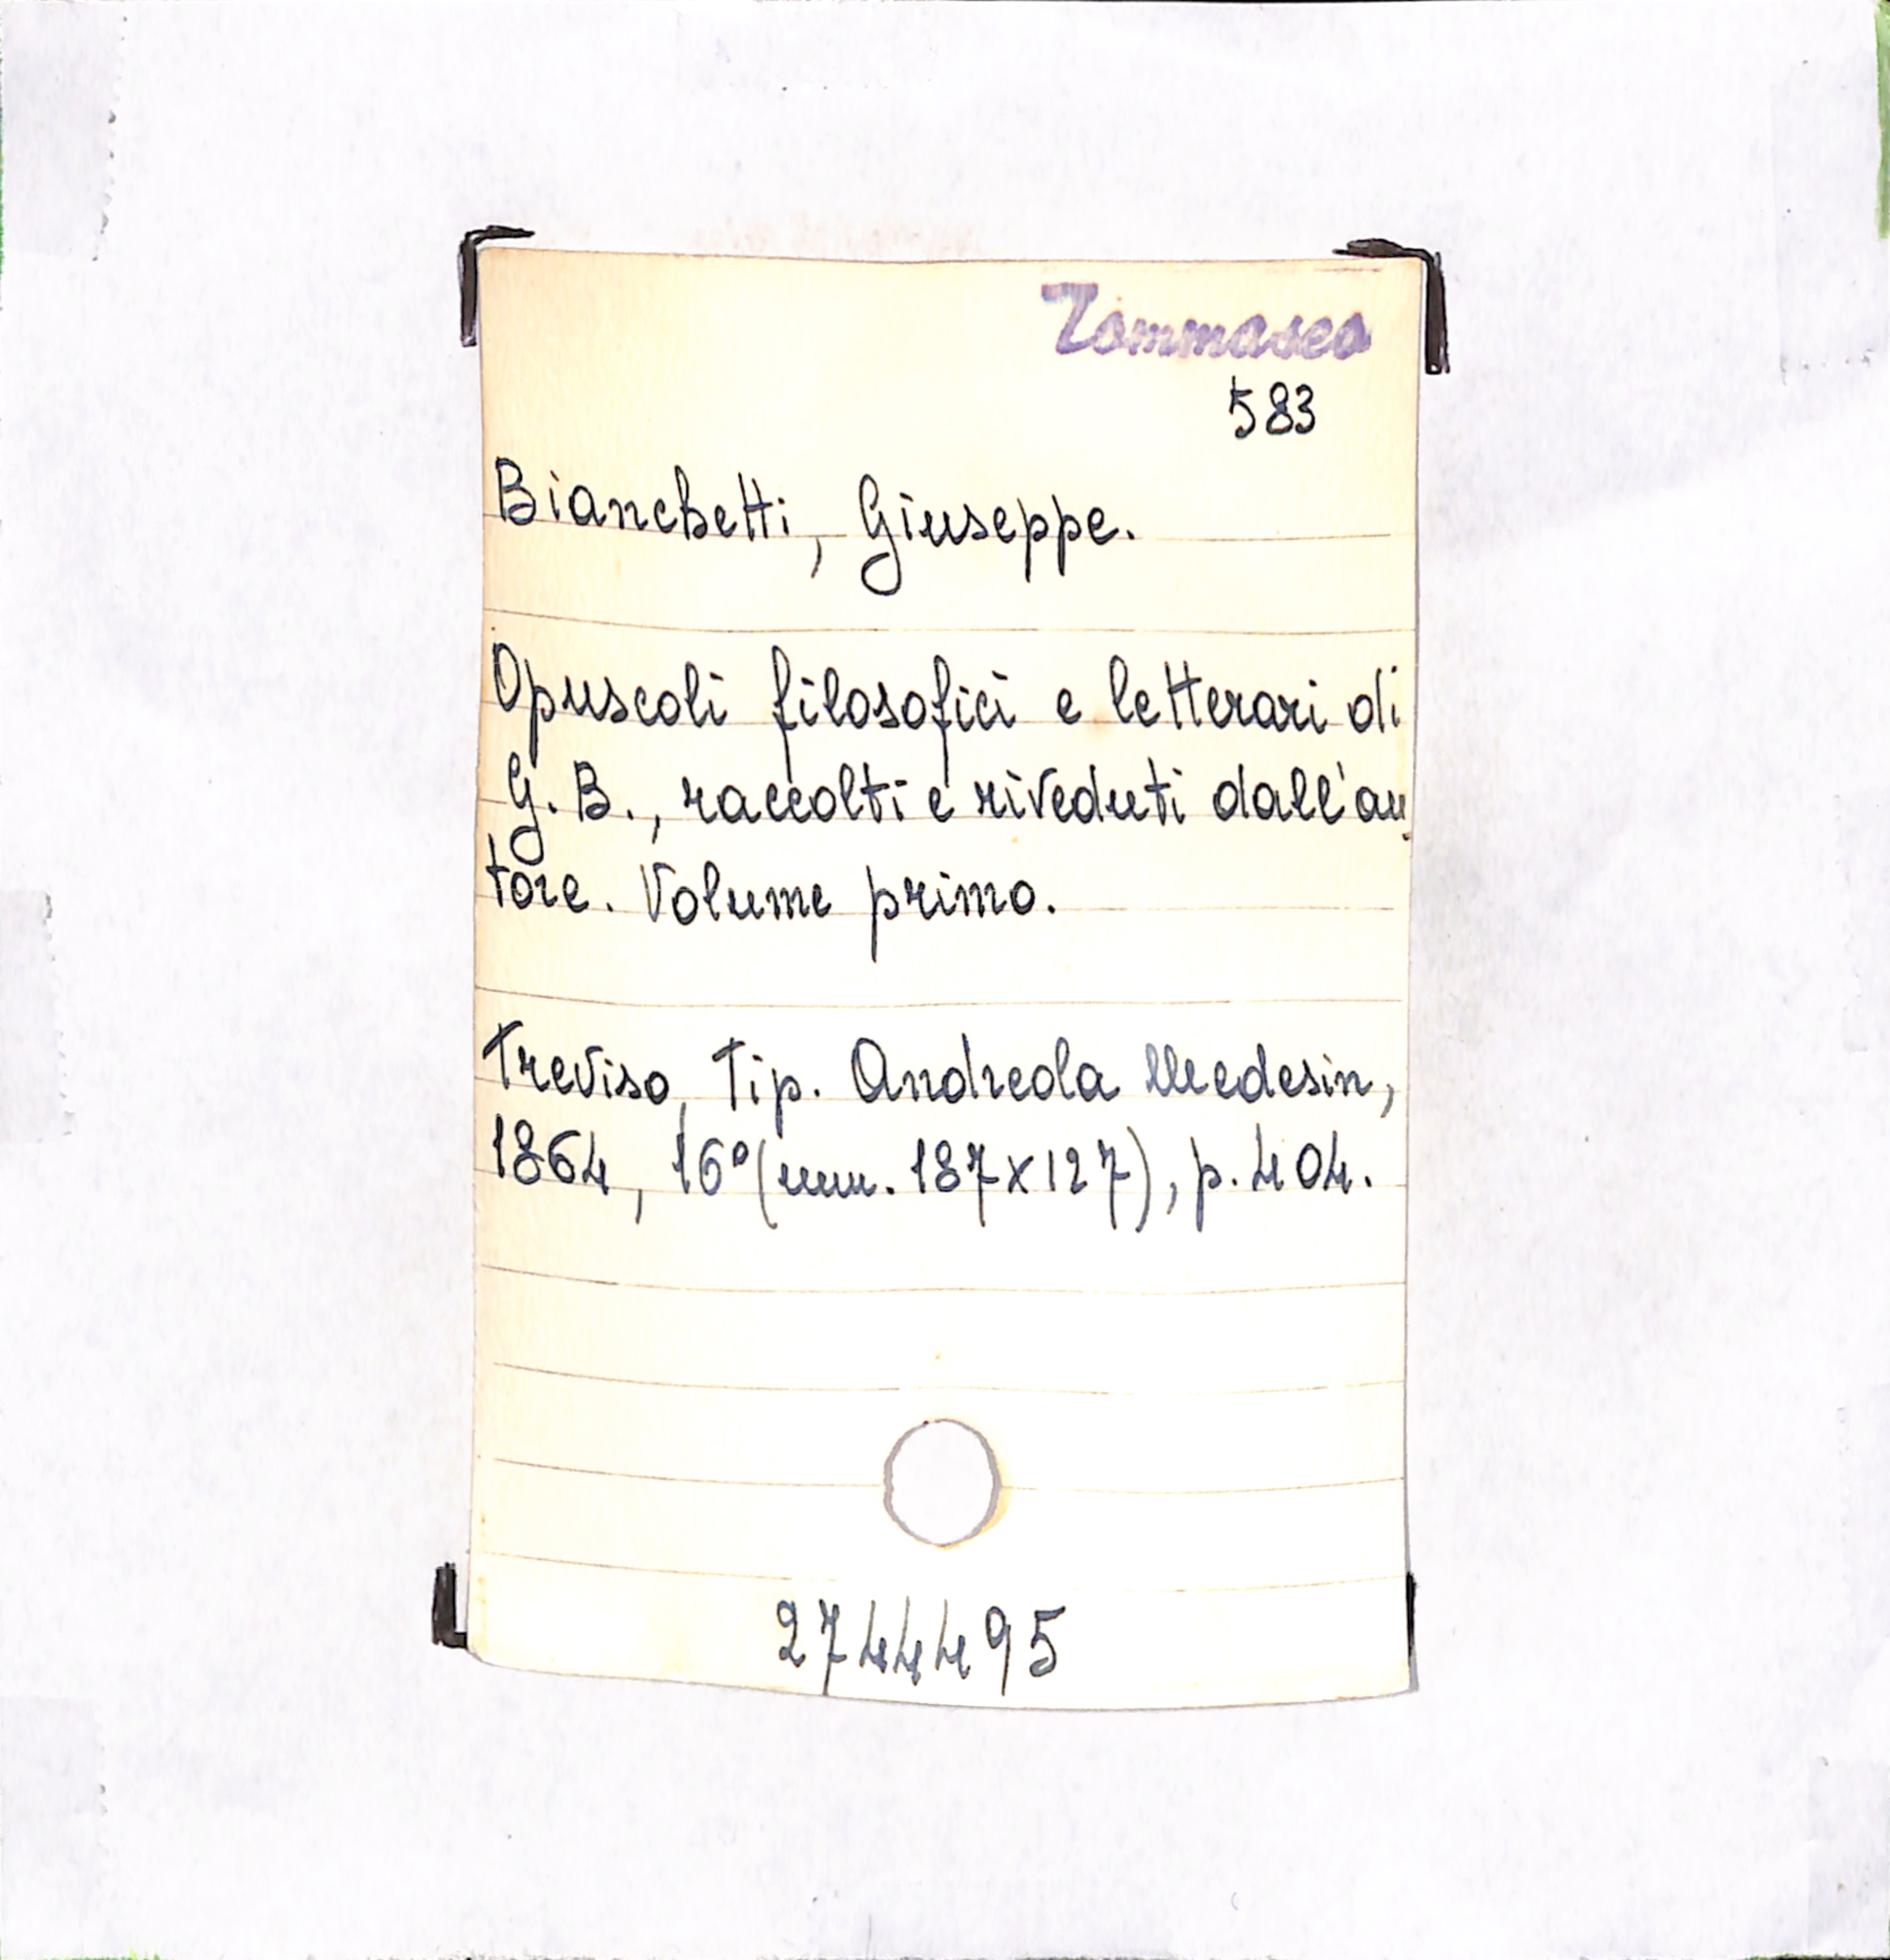 Tommaseo
583
Bianchetti, Giuseppe.
Opuscoli filosofici e letterari di
G. B., raccolti e riveduti dall'au
tore. Volume primo.
Treviso, Tip. Andreola Medesin,
1864, 16° (mm. 187x127), p. 404.
2744495